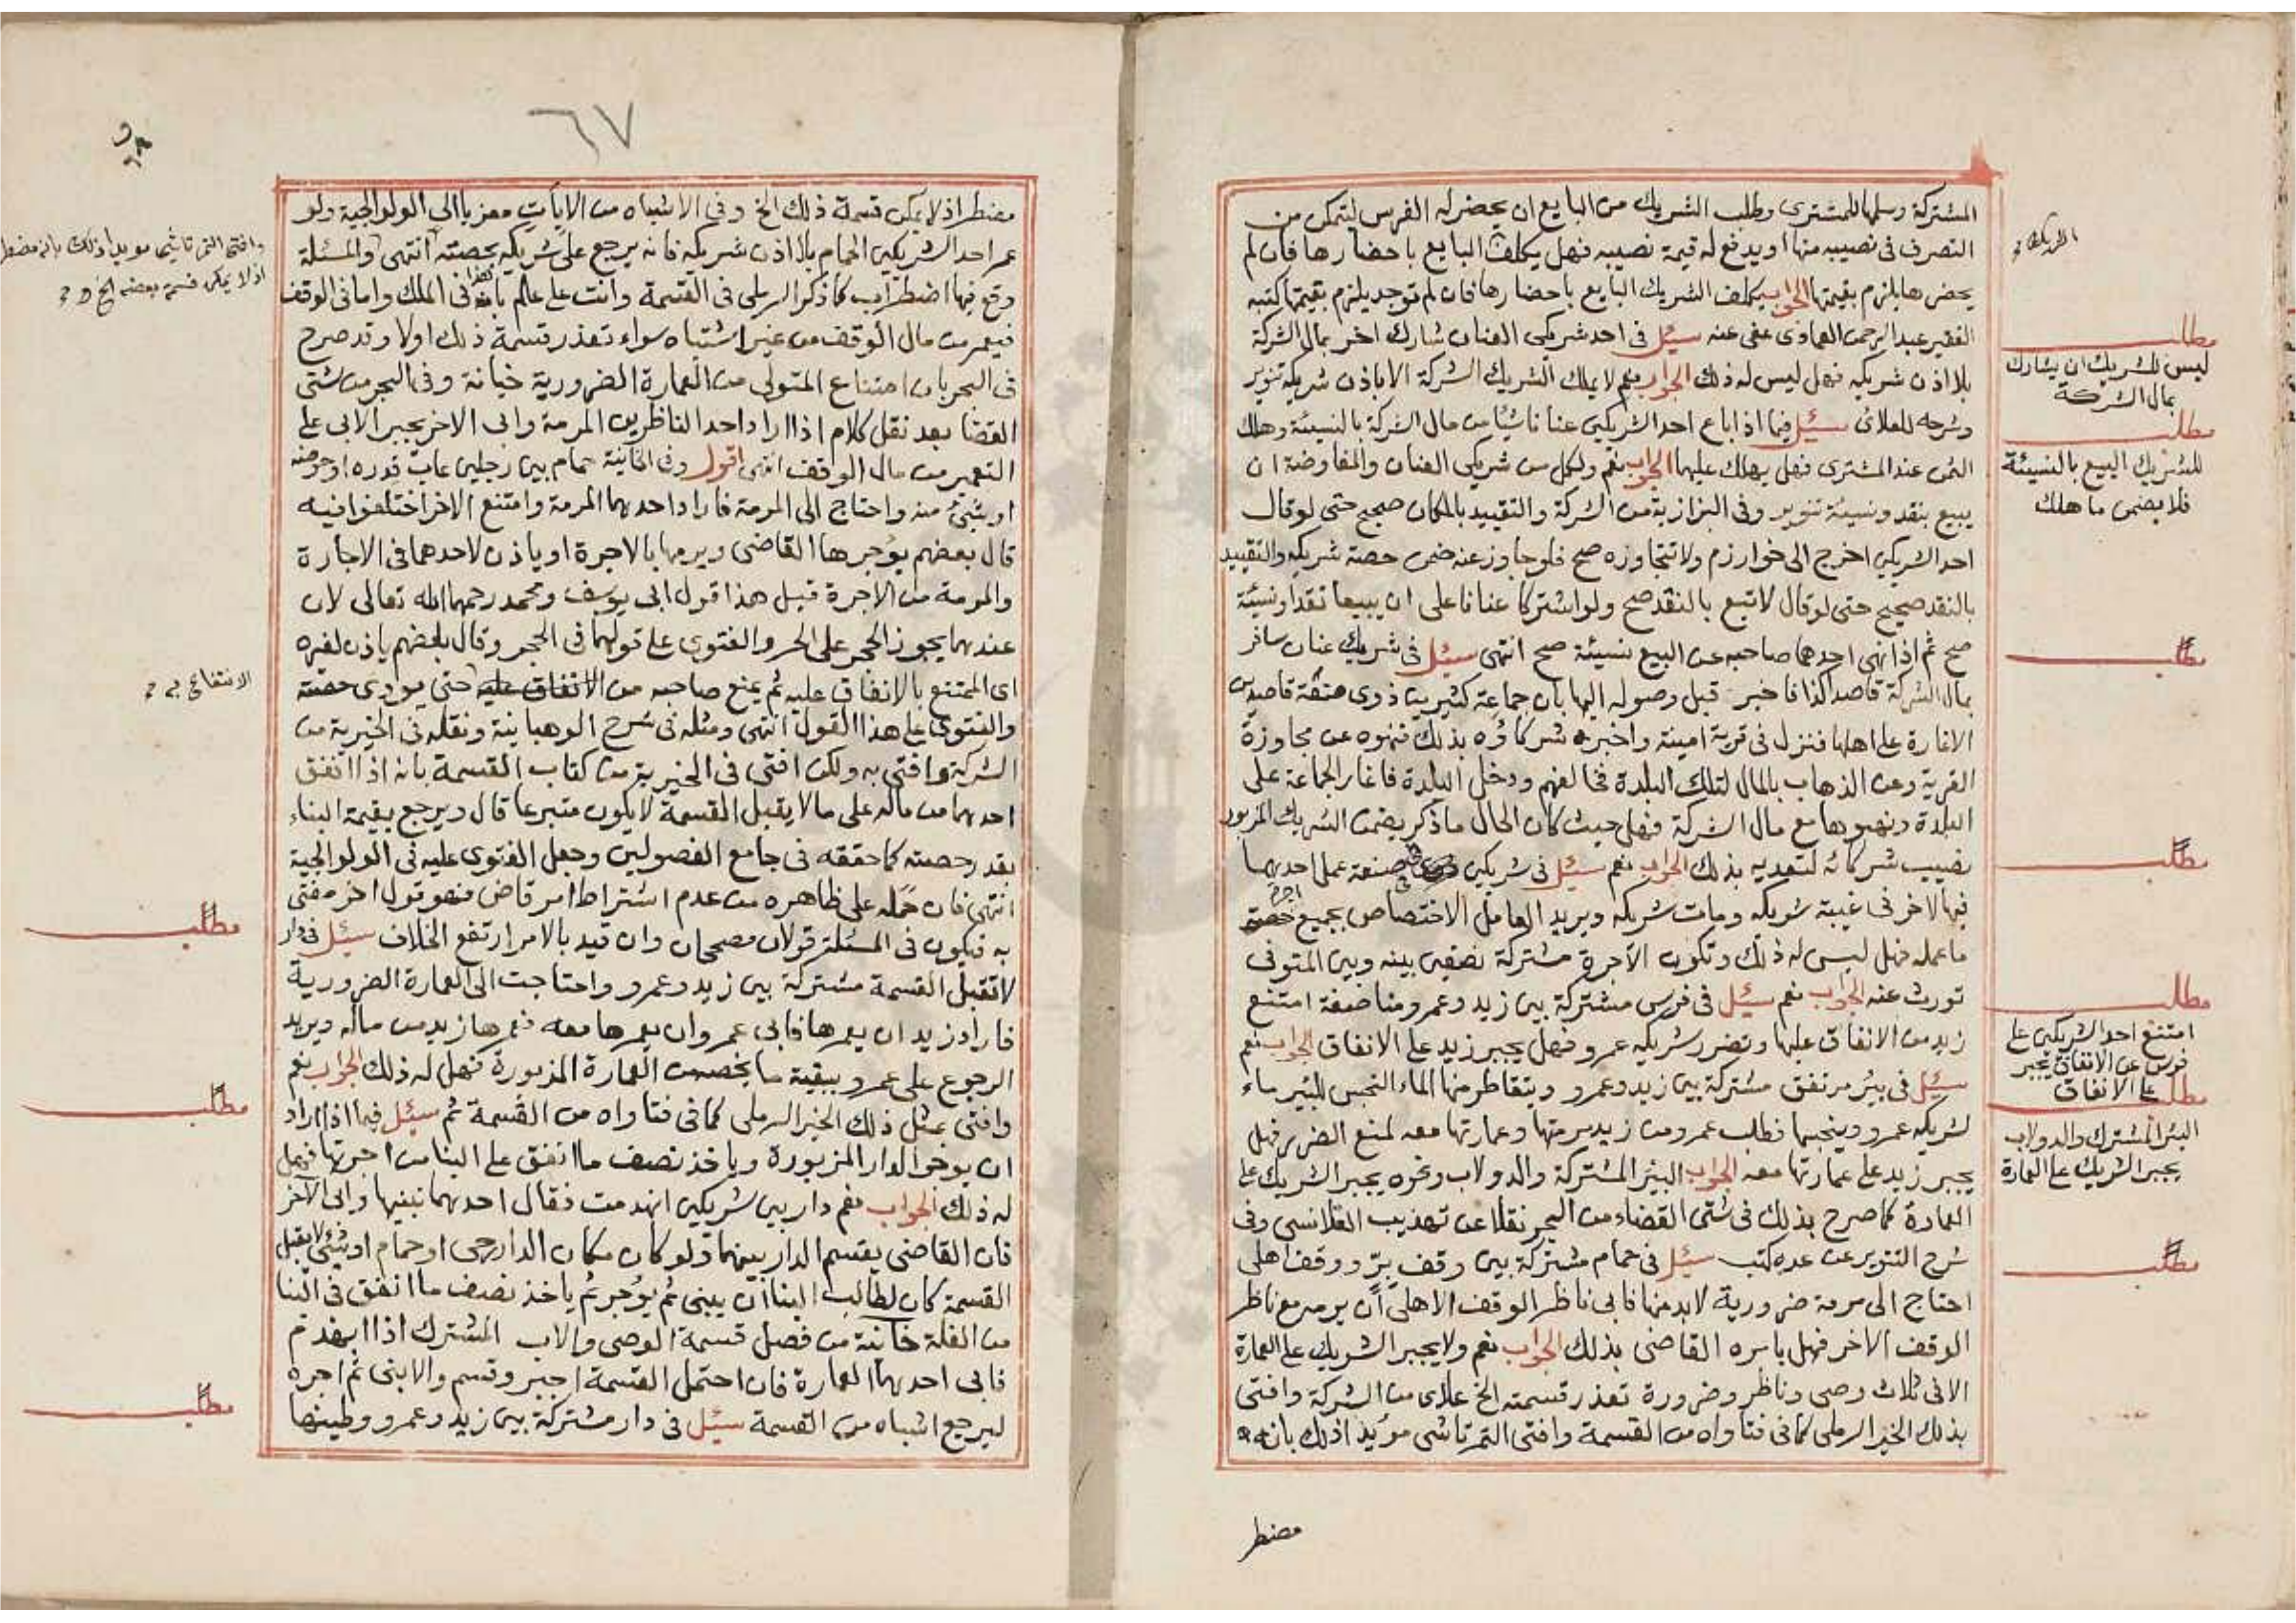 المشتركة وسلمها للمشترى وطلب الشريك من البايع ان يحضر له الفرس ليتمكن من
التصرف فى نصيبه منها او يدفع له قيمة نصيبه فهل يكلف البايع باحضارها فان لم
يحضرها يلزم بقيمتها الجواب يكلف الشريك البايع باحضارها فان لم توجد يلزم بقيمتها كتبه
الفقير عبد الرحمن العمادى عفى عنه سئل فى احد شريكى العنان شارك اخر بمال الشركة
بلا اذن شريكه فهل ليس له ذلك الجواب نعم لا يملك الشريك الشركة الا باذن شريكه تنوير
وشرحه للعلائى سئل فيما اذا باع احد الشريكين عنانا شيئا من مال الشركة بالنسيئة وهلك
الثمن عند المشترى فهل يهلك عليهما الجواب نعم ولكل من شريكى العنان والمفاوضة ان
يبيع بنقد ونسيئة تنوير وفى البزازية من الشركة والتقييد بالمكان صحيح حتى لو قال
احد الشريكين اخرج الى خوارزم ولا تتجاوزه صح فلو جاوز عنه ضمن حصة شريكه والتقييد
بالنقد صحيح حتى لو قال لا تبع بالنقد صح ولو اشتركا عنانا على ان يبيعا نقدا ونسيئة
صح ثم اذا نهى احدهما صاحبه عن البيع نسيئة صح انتهى سئل فى شريك عنان سافر
بمال الشركة قاصدا كذا فاخبر قبل وصوله اليها بان جماعة كثيرين ذوى منعة قاصدين
الاغارة على اهلها فنزل فى قرية امينة واخبره شركاؤه بذلك فنهوه عن مجاوزة
القرية وعن الذهاب بالمال لتلك البلدة فخالفهم ودخل البلدة فاغار الجماعة على
البلدة ونهبوها مع مال الشركة فهل حيث كان الحال ما ذكر يضمن الشريك المزبور
نصيب شركائه لتعديه بذلك الجواب نعم سئل فى شريكين فى صنعة عمل احدهما
فيها لاخر فى غيبة شريكه ومات شريكه ويريد العامل الاختصاص بجميع اجرة
ما عمله فهل ليس له ذلك وتكون الاجرة مشتركة نصفين بينه وبين المتوفى
تورث عنه الجواب نعم سئل فى فرس مشتركة بين زيد وعمرو مناصفة امتنع
زيد من الانفاق عليها وتضرر شريكه عمرو فهل يجبر زيد على الانفاق الجواب نعم
سئل فى بئر مرتفق مشتركة بين زيد وعمرو ويتقاطر منها الماء النجس للبئر ماء
لشريكه عمرو وينجسها فطلب عمرو من زيد مرمتها وعمارتها معه لمنع الضرر فهل
يجبر زيد على عمارتها معه الجواب البئر المشتركة والدولاب ونحوه يجبر الشريك على
العمارة كما صرح بذلك فى شتى القضاء من البحر نقلا عن تهذيب القلانسى وفى
شرح التنوير عن عدة كتب سئل فى حمام مشتركة بين وقف بر ووقف اهلى
احتاج الى مرمة ضرورية لابد منها فابى ناظر الوقف الاهلى ان يرمه مع ناظر
الوقف الاخر فهل يامره القاضى بذلك الجواب نعم ولا يجبر الشريك على العمارة
الا فى ثلاث وصى وناظر وضرورة تعذر قسمته الخ علائى من الشركة وافتى
بذلك الخير الرملى كما فى فتاواه من القسمة وافتى التمرتاشى مؤيدا ذلك بانه
مضطر
مطلب
ليس للشريك ان يشارك
بمال الشركة
مطلب
للشريك البيع بالنسيئة
فلا يضمن ما هلك
مطلب
مطلب
مطلب
امتنع احد الشريكين على
فرس عن الانفاق يجبر
على الانفاق
مطلب
البئر المشترك والدولاب
يجبر الشريك على العمارة
مطلب
٦٧
مضطر اذ لا يمكن قسمة ذلك الخ وفى الاشباه من الايات معزيا الى الولوالجية ولو
عمر احد الشريكين الحمام بلا اذن شريكه فانه يرجع على شريكه بحصته انتهى والمسئلة
وقع فيها اضطراب كما ذكر الرملى فى القسمة وانت على علم بان هذا فى الملك واما فى الوقف
فيعمر من مال الوقف من غير اشتباه سواء تعذر قسمة ذلك اولا وقد صرح
فى البحر بان امتناع المتولى من العمارة الضرورية خيانة وفى البحر من شتى
القضا بعد نقل كلام اذا اراد احد الناظرين المرمة وابى الاخر يجبر الابى على
التعمير من مال الوقف انتهى اقول وفى الخانية حمام بين رجلين عاب قدره او حوضه
او شئ منه واحتاج الى المرمة فاراد احدهما المرمة وامتنع الاخر اختلفوا فيه
قال بعضهم يؤجرها القاضى ويرمها بالاجرة او ياذن لاحدهما فى الاجارة
والمرمة من الاجرة قيل هذا قول ابى يوسف ومحمد رحمهما الله تعالى لان
عندهما يجوز الحجر على الحر والفتوى على قولهما فى الحجر وقال بعضهم ياذن لغيره
اى الممتنع بالانفاق عليه ثم يمنع صاحبه من الانتفاع به حتى يؤدى حصته
والفتوى على هذا القول انتهى ومثله فى شرح الوهبانية ونقله فى الخيرية من
الشركة وافتى به ولكن افتى فى الخيرية من كتاب القسمة بانه اذا انفق
احدهما من ماله على ما لا يقبل القسمة لا يكون متبرعا قال ويرجع بقيمة البناء
بقدر حصته كما حققه فى جامع الفصولين وجعل الفتوى عليه فى الولوالجية
انتهى فان حمله على ظاهره من عدم اشتراط امر قاض فهو قول اخر مفتى
به فيكون فى المسئلة قولان مصححان وان قيد بالامر ارتفع الخلاف سئل فى دار
لا تقبل القسمة مشتركة بين زيد وعمرو واحتاجت الى العمارة الضرورية
فاراد زيد ان يعمرها فابى عمرو ان يعمرها معه فعمرها زيد من ماله ويريد
الرجوع على عمرو ببقية ما يخصه من العمارة المزبورة فهل له ذلك الجواب نعم
وافتى بمثل ذلك الخير الرملى كما فى فتاواه من القسمة ثم سئل فيما اذا اراد
ان يوجر الدار المزبورة وياخذ نصف ما انفق على البنا من اجرتها فهل
له ذلك الجواب نعم دار بين شريكين انهدمت فقال احدهما نبنيها وابى الاخر
فان القاضى يقسم الدار بينهما ولو كان مكان الدار رحى او حمام او شئ لا يقبل
القسمة كان لطالب البنا ان يبنى ثم يؤجر ثم ياخذ نصف ما انفق فى البنا
من الغلة خانية من فصل قسمة الوصى والاب المشترك اذا انهدم
فابى احدهما العمارة فان احتمل القسمة اجبر وقسم والا بنى ثم اجره
ليرجع اشباه من القسمة سئل فى دار مشتركة بين زيد وعمرو وطينها
وافتى التمرتاشى مويدا ذلك بانه مضطر
اذ لا يمكن قسمة بعضه الخ
الانتفاع به
مطلب
مطلب
مطلب